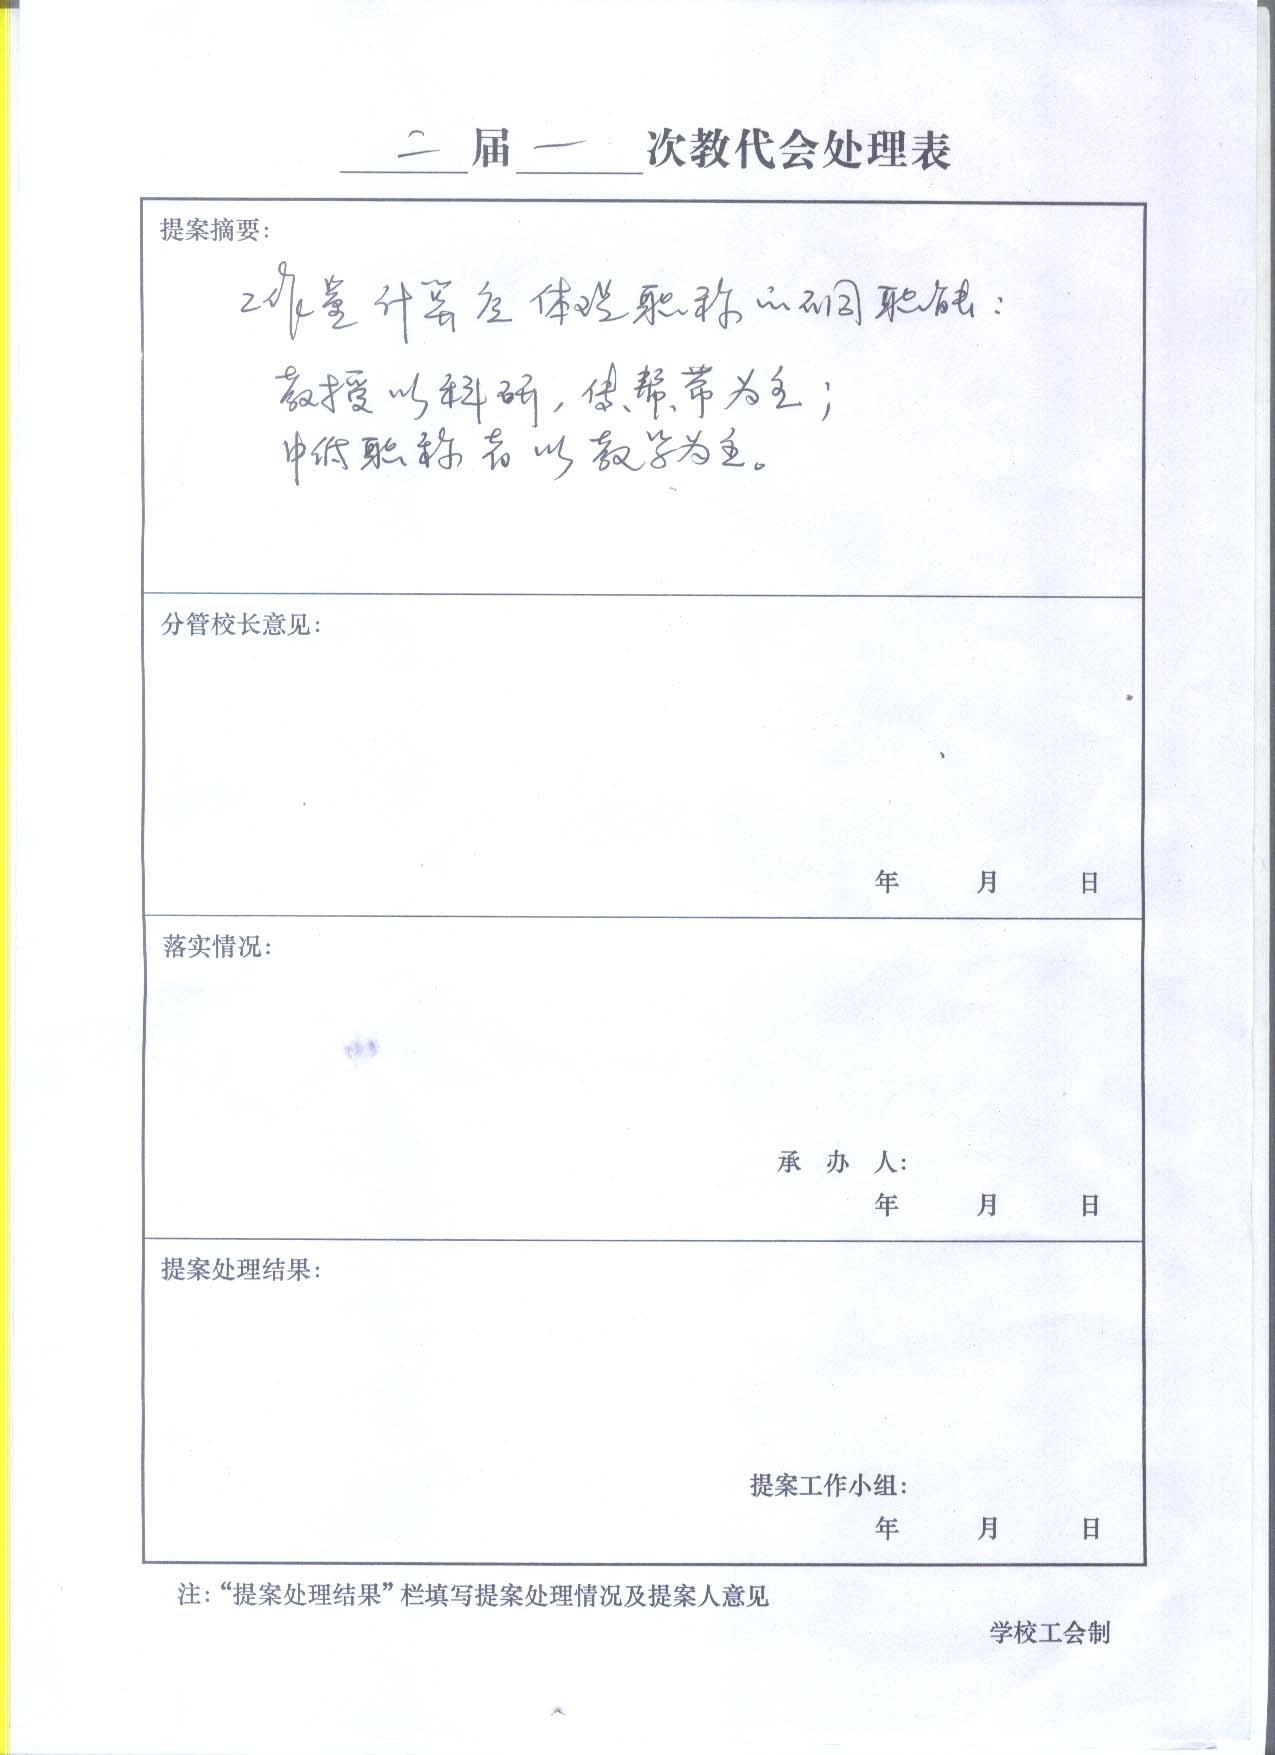 二届一次教代会处理表
提案摘要:
工作量计算应体现职称的不同职能:
教授以科研,传、帮、带为主;
中低职称者以教学为主。
分管校长意见:
年 月 日
落实情况:
承 办 人:
年 月 日
提案处理结果:
提案工作小组:
年 月 日
注:“提案处理结果”栏填写提案处理情况及提案人意见
学校工会制